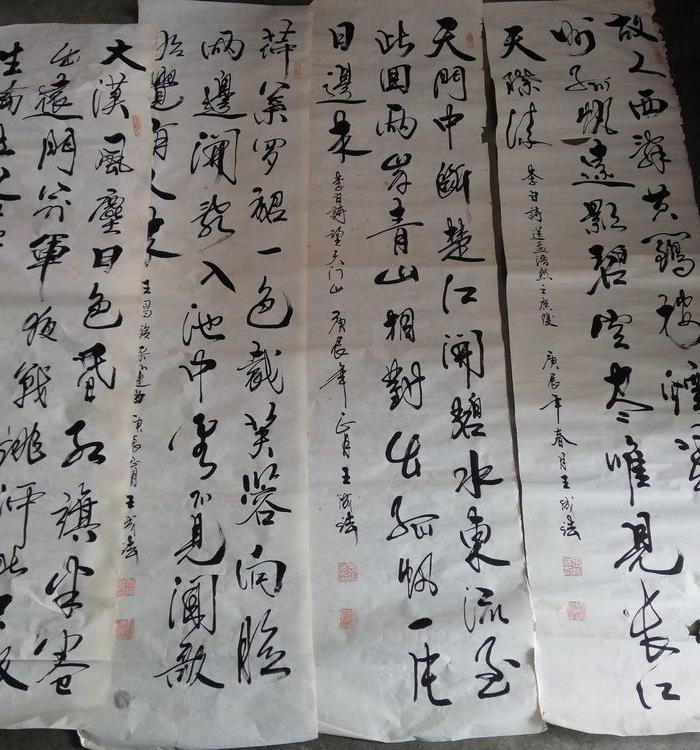 故人西辞黄鶴楼煙
州孤帆遠影碧空尽唯見長江
天際流
李白詩送孟浩然之廣陵 庚辰年春月王成法
天門中斷楚江開碧水東流至
此回兩岸青山相對出孤帆一片
日邊来
李白詩望天门山 庚辰年正月王成法
荷葉罗裙一色裁芙蓉向脸
兩邊開乱入池中看不見聞歌
始覺有人来
王昌龄采蓮曲 庚辰正月王成法
大漠風塵日色昏红旗半卷
出轅門前軍夜戰洮河北已报
生擒吐谷